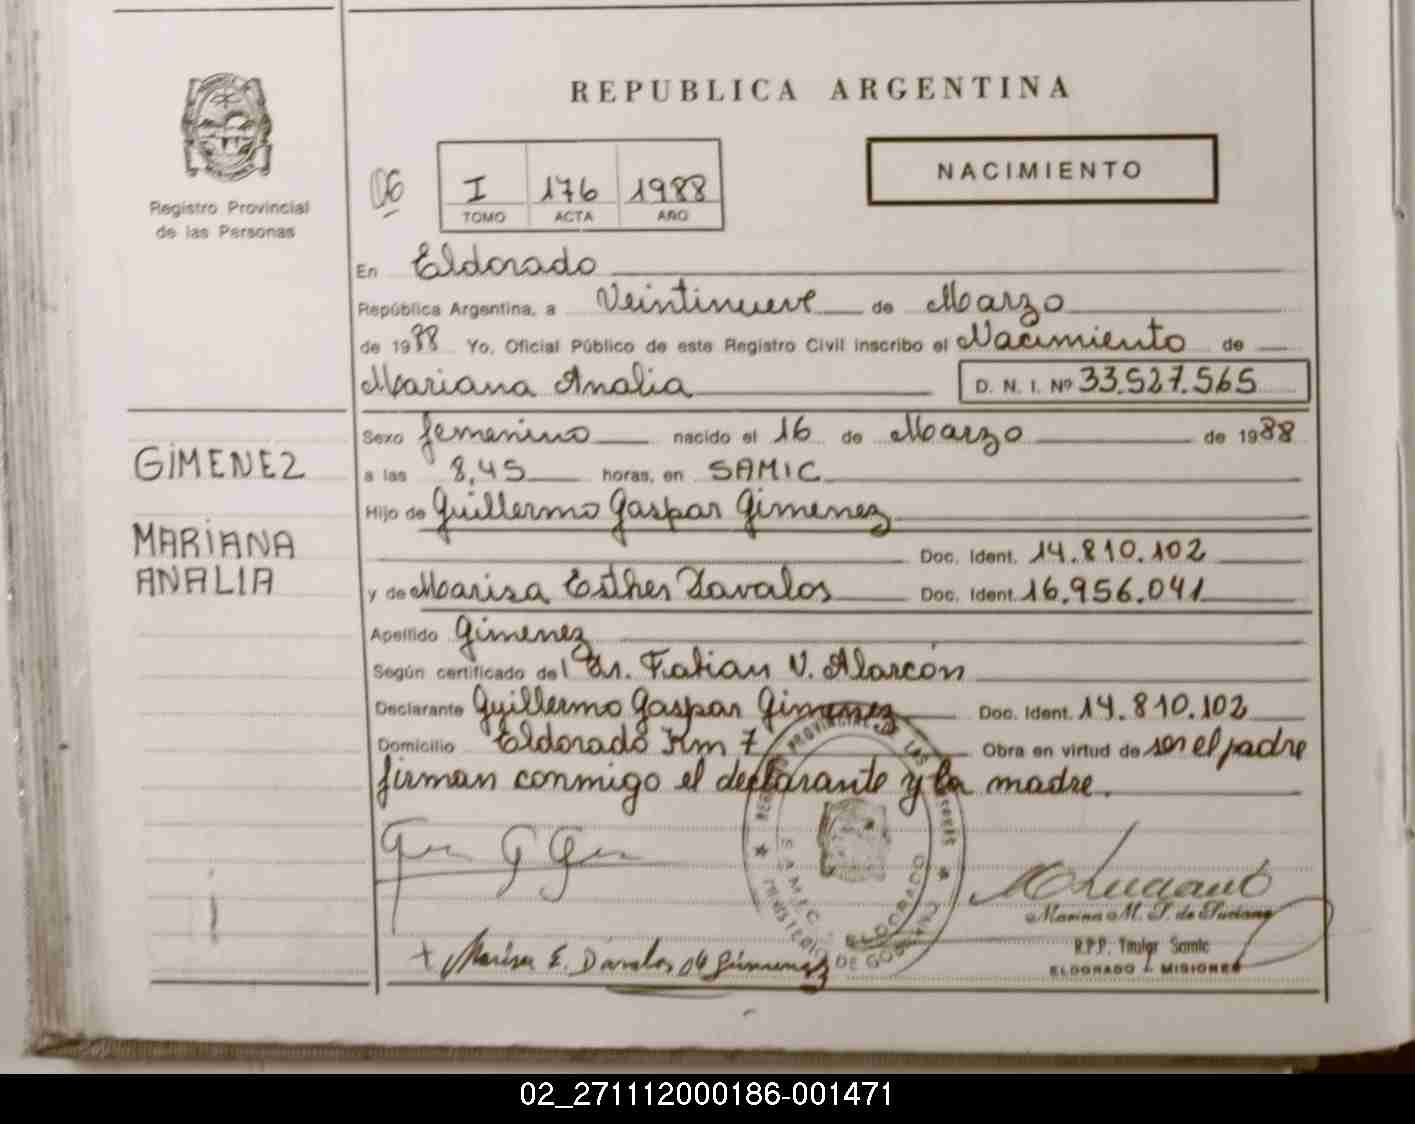 REPUBLICA ARGENTINA
NACIMIENTO
Registro Provincial
de las Personas
06
I 176 1988
TOMO ACTA AÑO
En Eldorado
República Argentina, a Veintinueve de Marzo
de 1988 Yo, Oficial Público de este Registro Civil inscribo el Nacimiento de
Mariana Analia D. N. I. Nº 33.527.565
GIMENEZ
MARIANA
ANALIA
Sexo femenino nacido el 16 de Marzo de 1988
a las 8,45 horas, en SAMIC
Hijo de Guillermo Gaspar Gimenez
Doc. Ident. 14.810.102
y de Marisa Esther Davalos Doc. Ident. 16.956.041
Apellido Gimenez
Según certificado del Dr. Fabian V. Alarcón
Declarante Guillermo Gaspar Gimenez Doc. Ident. 14.810.102
Domicilio Eldorado Km 7 Obra en virtud de ser el padre
firman conmigo el declarante y la madre.
REGISTRO PROVINCIAL DE LAS PERSONAS
S.A.M.I.C. ELDORADO
MINISTERIO DE GOBIERNO
Marisa E. Davalos de Gimenez
Marina M. P. de
R.P.P. Titular Samic
ELDORADO - MISIONES
02_271112000186-001471